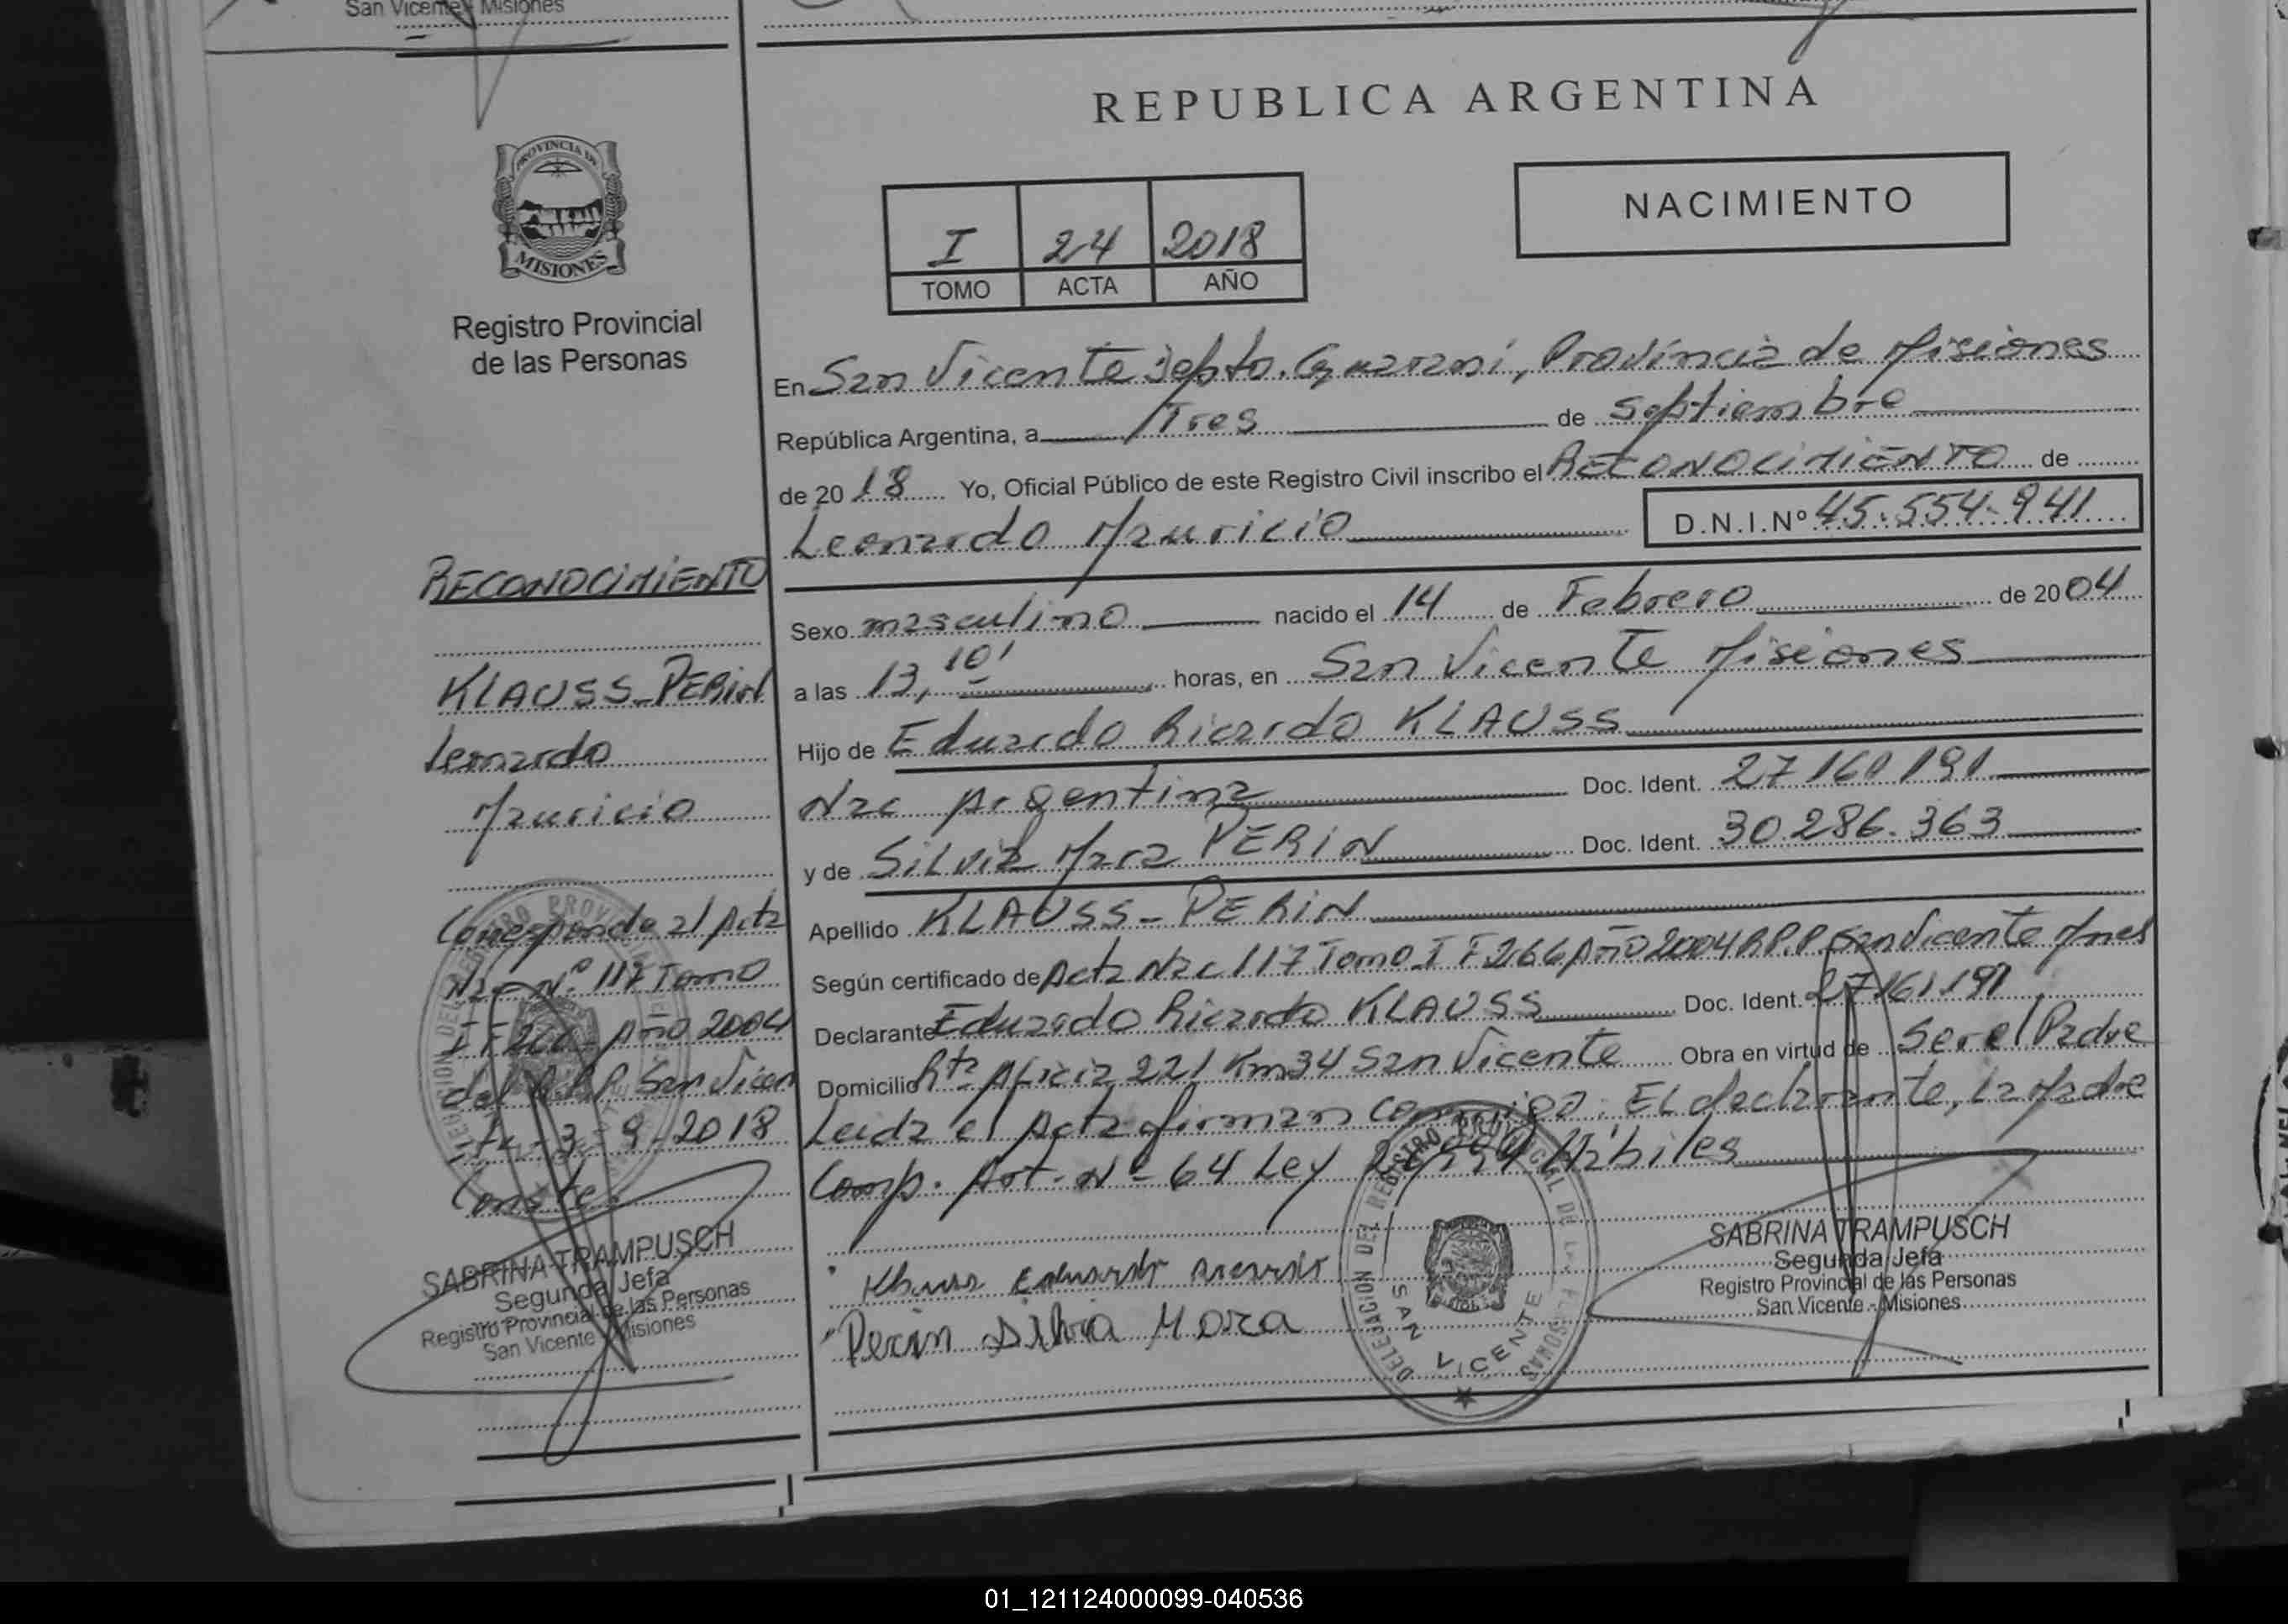 San Vicente - Misiones
REPUBLICA ARGENTINA
PROVINCIA DE
MISIONES
Registro Provincial
de las Personas
I 24 2018
TOMO ACTA AÑO
NACIMIENTO
En San Vicente Depto. Guaraní, Provincia de Misiones
República Argentina, a Tres de septiembre
de 2018 Yo, Oficial Público de este Registro Civil inscribo el RECONOCIMIENTO de
Leonardo Mauricio D.N.I.Nº 45.554.941
Sexo masculino nacido el 14 de Febrero de 2004
a las 13,10' horas, en San Vicente Misiones
Hijo de Eduardo Ricardo KLAUSS
Nac Argentina Doc. Ident. 27161191
y de Silvia Mara PERIN Doc. Ident. 30.286.363
Apellido KLAUSS-PERIN
Según certificado de Acta Nac 117 Tomo I F266 Año 2004 R.P.P San Vicente Mnes
Declarante Eduardo Ricardo KLAUSS Doc. Ident. 27161191
Domicilio Rta Alicia 221 Km34 San Vicente Obra en virtud de Ser el Padre
Leida el Acta firman conmigo. El declarante, La Madre
Comp. Art. Nº 64 Ley Hábiles
Klauss Eduardo Ricardo
Perin Silvia Mara
DELEGACION DEL REGISTRO PROVINCIAL DE LAS PERSONAS
SAN VICENTE
SABRINA TRAMPUSCH
Segunda Jefa
Registro Provincial de las Personas
San Vicente - Misiones
RECONOCIMIENTO
KLAUSS-PERIN
Leonardo
Mauricio
Corresponde al Acta
Nac Nº 117 Tomo
I F266 Año 2004
del R.P.P San Vicen
te - 3-9-2018
Conste
SABRINA TRAMPUSCH
Segunda Jefa
Registro Provincial de las Personas
San Vicente - Misiones
01_121124000099-040536